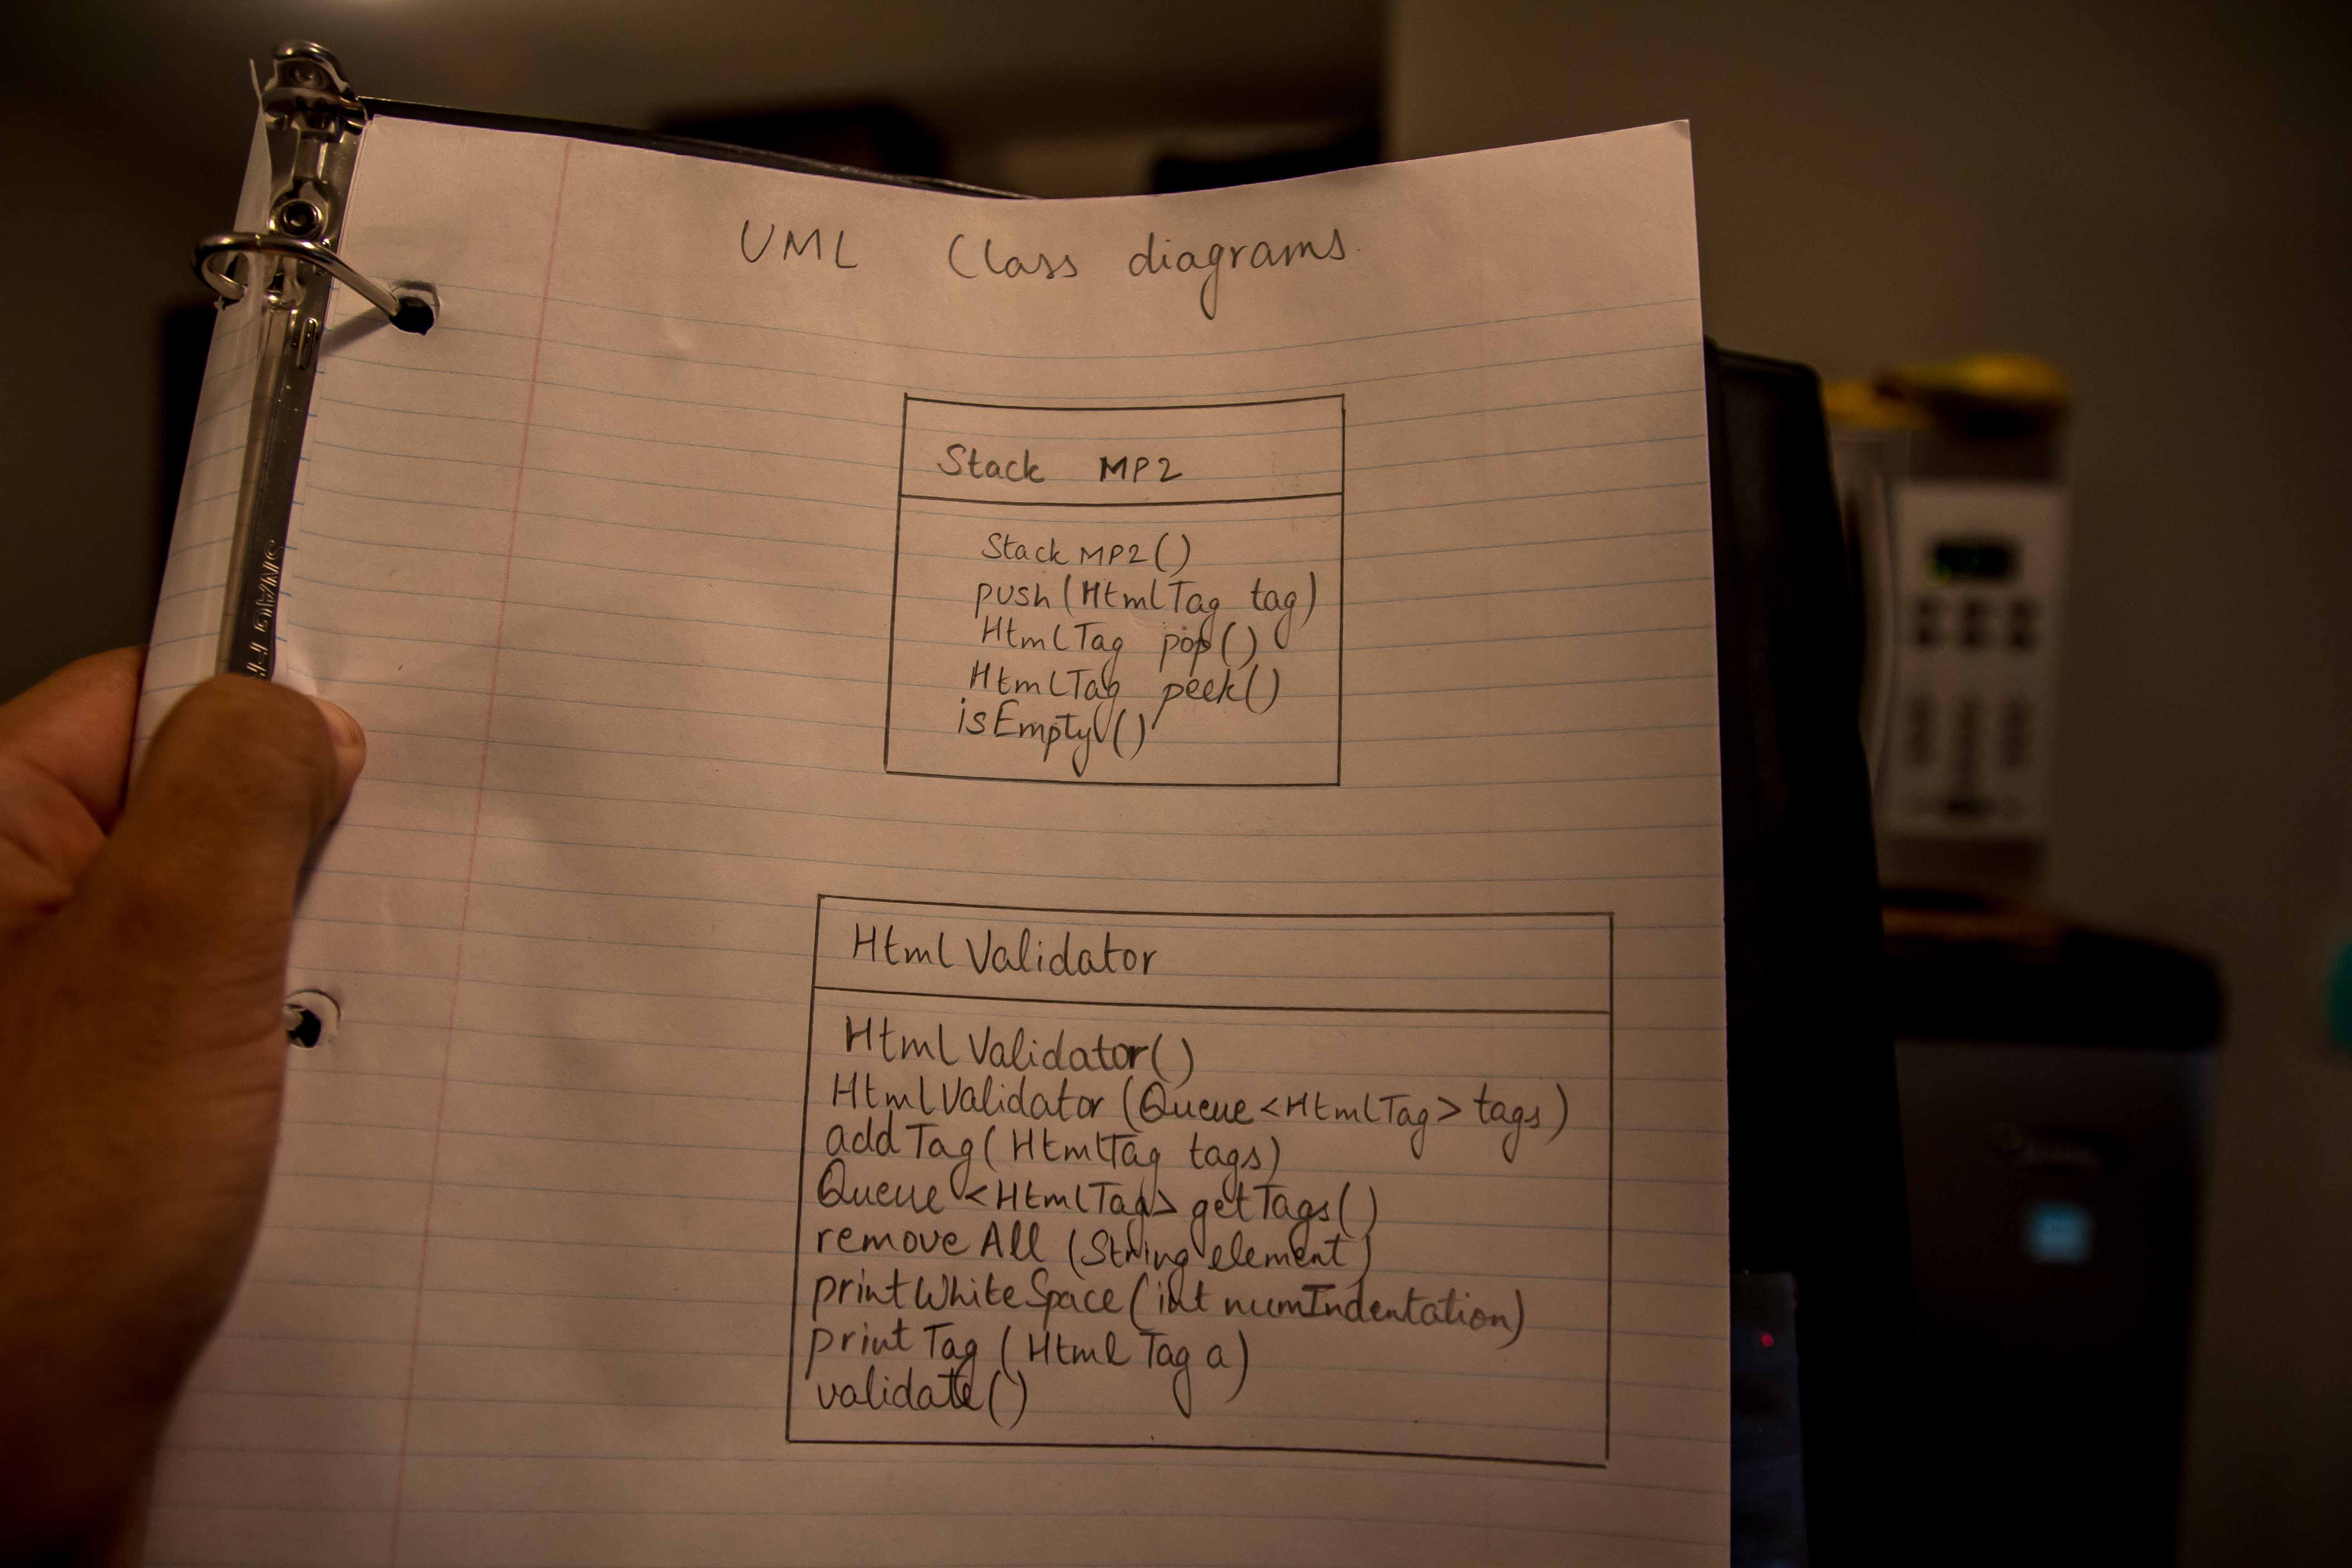 UML Class diagrams
Stack MP2
Stack MP2()
push(HtmlTag tag)
HtmlTag pop()
HtmlTag peek()
isEmpty()
HtmlValidator
HtmlValidator()
HtmlValidator(Queue<HtmlTag> tags)
addTag(HtmlTag tags)
Queue<HtmlTag> getTags()
removeAll (String element)
printWhiteSpace(int numIndentation)
printTag (HtmlTag a)
validate()